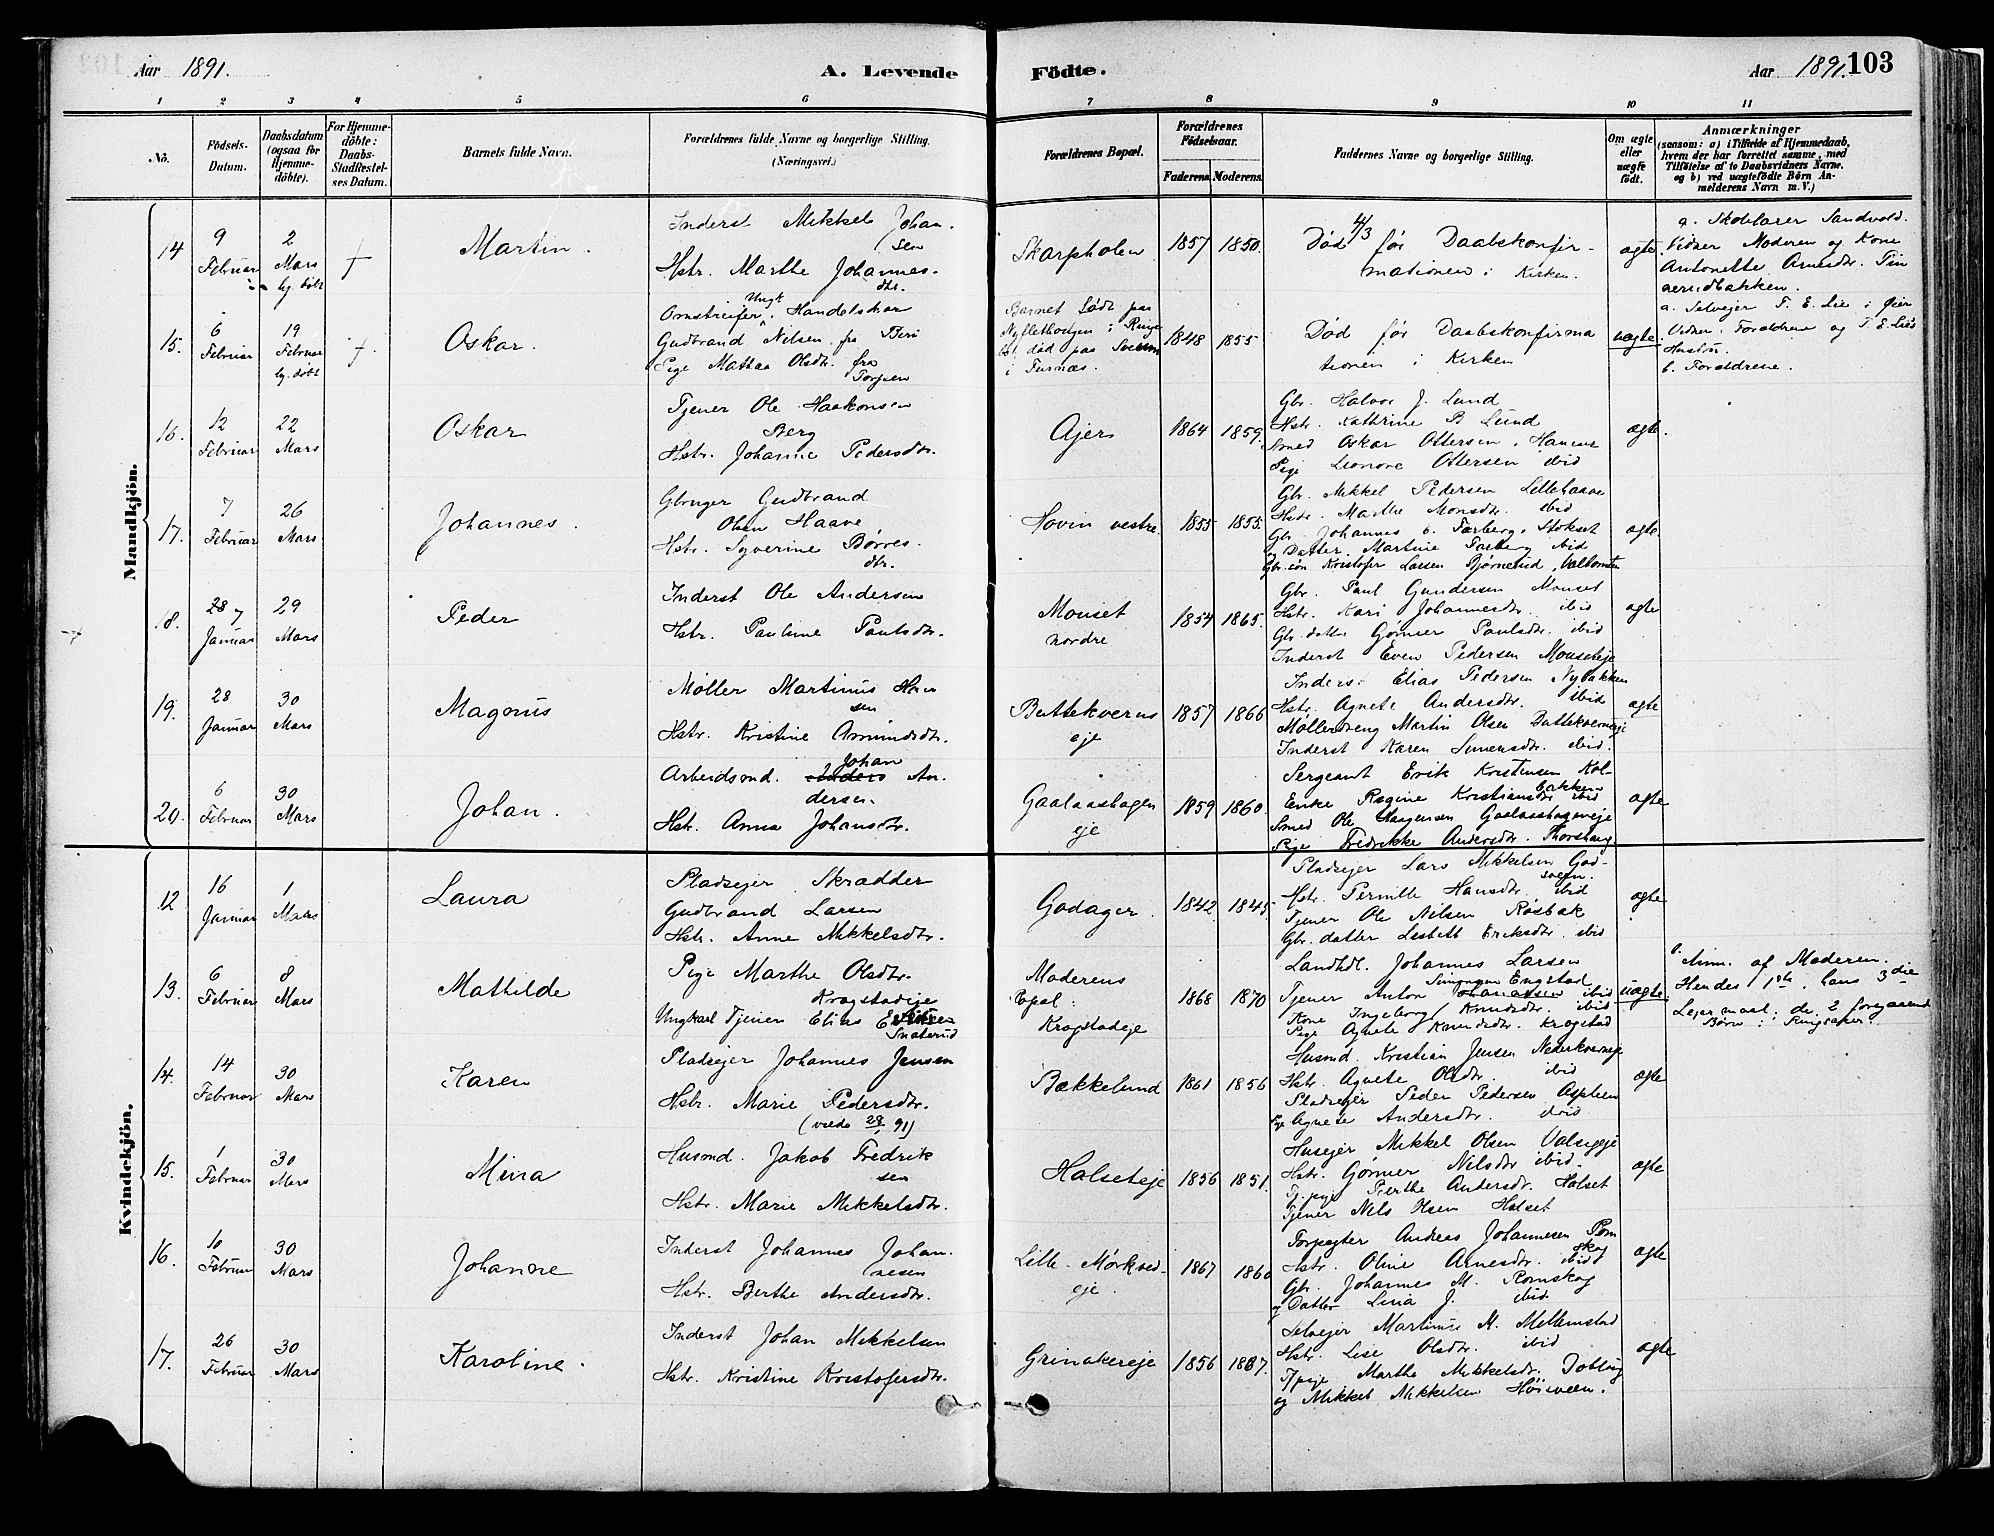 Aar 1891.
A. Levende Födte.
Aar 1891. 103
1 2 3 4 5 6 7 8 9 10 11
No.
Födsels-Datum.
Daabsdatum (ogsaa for Hjemme-döbte).
For Hjemme-döbte: Daabs-Stadfæstelses Datum.
Barnets fulde Navn.
Forældrenes fulde Navne og borgerlige Stilling. (Næringsvei.)
Forældrenes Bopæl.
Forældrenes Födselsaar.
Faderens. Moderens.
Faddernes Navne og borgerlige Stilling.
Om ægte eller uægte födt.
Anmærkninger
(saasom: a) i Tilfælde af Hjemmedaab, hvem der har forrettet samme, med Tilföielse af to Daabsvidners Navne, og b) ved uægtefödte Børn Anmelderens Navn m. V.)
Mandkjön.
14 9 Februar 2 Mars hj. döbt † Martin.
Inderst Mikkel Johansen
Hstr. Marthe Johannesdtr.
Skarpholen 1857 1850.
Død 4/3 før Daabskonfirmationen i Kirken.
ægte
a. Skolelærer Sandvold.
Vidner Moderen og Kone
Antonette Arnesdtr.
15. 6 Februar 19 Februar hj. döbt † Oskar.
Omstreifer, Ungk. Handelskar
Gudbrand Nilsen fra Beri
Pige Mathea Olsdtr. fra Torpen
Barnet født paa
i Rings.
død paa
i Furnæs.
1848 1855
Død før Daabskonfirmationen i Kirken
uægte
a. Selveier T. E. Lie i Øier
Vidner: Forældrene og T. E. Lie's Hustru.
b. Forældrene.
16. 12 Februar 22 Mars Oskar
Tjener Ole Haakonsen Berg
Hstr. Johanne Pedersdtr.
Ajer 1864 1859.
Gbr. Halvor J. Lund
Hstr. Kathrine B Lund
Smed Oskar Ottersen, Hamar
Pige Leonore Ottersen ibid
ægte.
17. 7 Februar 26 Mars Johannes.
Gbruger Gudbrand
Olsen Haave,
Hstr. Syverine Børresdtr.
Hovin vestre 1855 1855.
Gbr. Mikkel Pedersen Lillehaave
Hstr. Marthe Monsdtr. ibid
Gbr. Johannes C. Farberg, Stokset
og Datter Martine Farberg ibid
Gbr.søn Kristofer Larsen Bjørnerud,
ægte
18. 28 7 Januar 29 Mars Peder
Inderst Ole Andersen
Hstr. Pauline Paulsdtr.
Mouset nordre 1854 1865.
Gbr. Paul Gundersen Mouset
Hstr. Kari Johannesdtr. ibid
Gbr. datter Gønner Paulsdtr. ibid
Inderst Even Pedersen Mouseteje
ægte
19. 28 Januar 30 Mars Magnus
Møller Martinus Hansen
Hstr. Kristine Amundsdtr.
Buttekverns eje 1857 1866
Inders: Elias Pedersen Nybakken
Hstr. Agnete Andersdtr. ibid
Møllerdreng Martin Olsen Buttekverneje
Inderst Karen Simensdtr. ibid.
ægte
20. 6 Februar 30 Mars Johan.
Arbeidsmd. Johan Andersen.
Hstr. Anna Johansdtr.
Gaalaashagen eje 1859 1860.
Sergeant Erik Kristensen Kolbakken
Enke Regine Kristiansdtr ibid
Smed Ole Haagensen Gaalaashageneje
Pige Fredrikke Andersdtr. Thorshaug.
ægte
Kvindekjön.
12 16 Januar 1 Mars Laura
Pladsejer Skrædder
Gudbrand Larsen
Hstr. Anne Mikkelsdtr.
Godager. 1842 1845
Pladsejer Lars Mikkelsen Godsveen.
Hstr. Pernille Hansdtr. ibid
Tjener Ole Nilsen Røsbak
Gbr. datter Lisbeth Eriksdtr. ibid
ægte.
13. 6 Februar 8 Mars Mathilde
Pige Marthe Olsdtr.
Krogstadeje
Ungkarl Tjener Elias
Snaterud
Moderens Bopæl: Krogstadeje 1868 1870
Landhdl. Johannes Larsen
Tjener Anton Simensen Engstad ibid
Kone Ingeborg Knudsdtr. ibid
Pige Agnete Knudsdtr. Krogstad
uægte
b. Anm. af Moderen.
Hendes 1ste, hans 3die
Leiermaal; de 2 foregaaend
Børn i Ringsaker.
14. 14 Februar 30 Mars Karen
Pladsejer Johannes Jensen
Hstr. Marie Pedersdtr.
Bækkelund 1861 1856
Husmd. Kristian Jensen Nederkverneje
Hstr. Agnete Olsdtr. ibid
Pladsejer Peder Pedersen Aspheen
Pige Agnete Andersdtr. ibid
ægte
15. 1 Februar 30 Mars Mina
Husmd. Jakob Fredriksen
Hstr. Marie Mikkelsdtr.
Halseteje 1856 1851.
Husejer Mikkel Olsen Valseggje
Hstr. Gønner Nilsdtr ibid.
Tj.pige Berthe Andersdr. Halset
Tjener Nils Olsen Halset
ægte
16. 10 Februar 30 Mars Johanne
Inderst Johannes Johannesen
Hstr. Berthe Andersdtr.
Lille-Mørkvedeje. 1867 1860
Forpagter Andreas Johannesen Romskog
Hstr. Oline Arnesdtr. ibid
Gbr. Johannes M. Romskog
og Datter Lina J. ibid.
ægte
17. 26 Februar 30 Mars Karoline.
Inderst Johan Mikkelsen
Hstr. Kristine Kristofersdtr.
Grinakereje 1856 1887.
Selvejer Martinus M. Mellemstad
Hstr. Lise Olsdtr. ibid
Tjpige Marthe Mikkelsdtr.
og Mikkel Mikkelsen Høisveen.
ægte